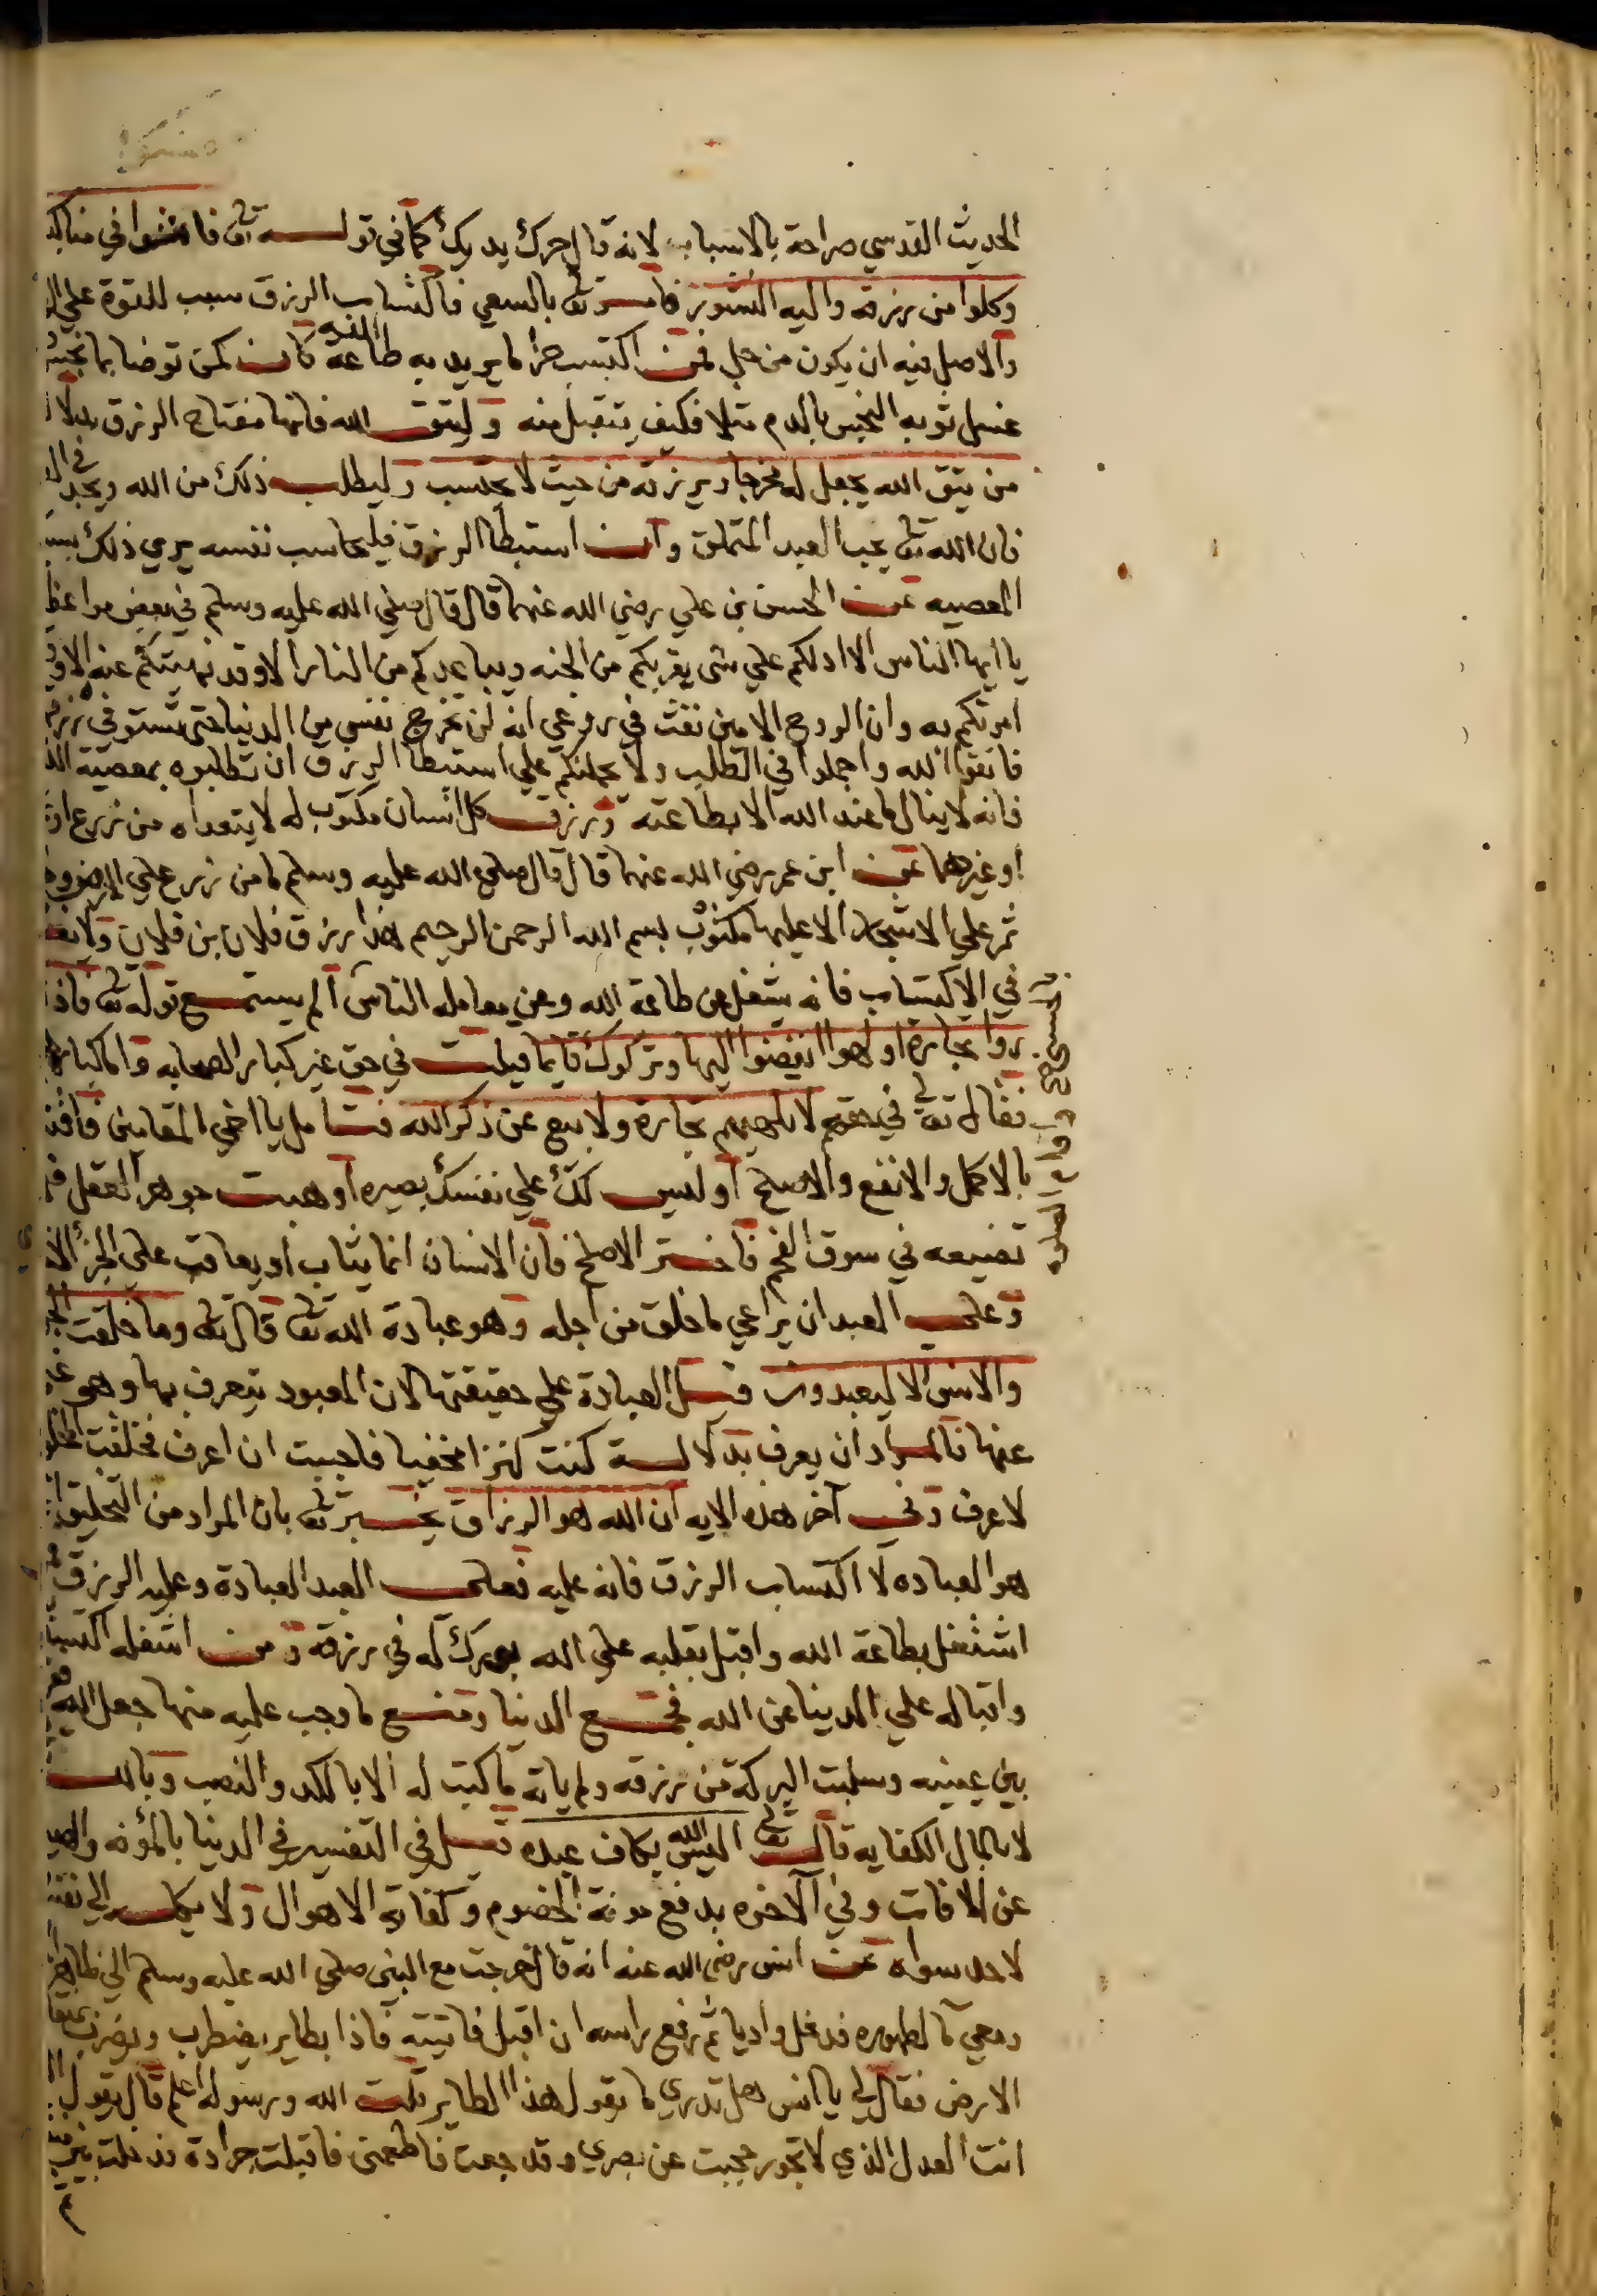 الحديث القدسي صراحة بالاسباب لانه قال حرك يديك كما في قوله تعالى فامشوا في مناكبها
وكلوا من رزقه واليه النشور فامر تعالى بالسعي فاكتساب الرزق سبب للقوة على
والاصل فيه ان يكون من حل فمن اكتسب حراما يريد به طاعة الله كان كمن توضا بما نجس
غسل ثوبه النجس بالدم مثلا فكيف يتقبل منه وليتق الله فانها مفتاح الرزق بدلالة
من يتق الله يجعل له مخرجا ويرزقه من حيث لا يحتسب وليطلب ذلك من الله ويجد في
فان الله تعالى يحب العبد المتملق وان استبطا الرزق فليحاسب نفسه يري ذلك بسبب
المعصيه عن الحسن بن علي رضي الله عنهما قال قال صلي الله عليه وسلم في بعض مواعظه
يا ايها الناس الا ادلكم علي شى يقربكم من الجنه ويباعدكم من النار الا وقد نهيتكم عنه الا وقد
امرتكم به وان الروح الامين نفث في روعي انه لن تخرج نفس من الدنيا حتى تستوفي رزقها
فاتقوا الله واجملوا في الطلب ولا يحملنكم علي استبطا الرزق ان تطلبوه بمعصية الله
فانه لا ينال ما عند الله الا بطاعته ورزق كل انسان مكتوب له لا يتعداه من زرع او
او غيرهما عن ابن عمر رضي الله عنهما قال قال صلي الله عليه وسلم ما من زرع علي الارض ولا
ثمر علي الاشجار الا عليها مكتوب بسم الله الرحمن الرحيم هذا رزق فلان بن فلان ولا
في الاكتساب فانه يشغل عن طاعة الله وعن معامله الناس الم يستمع قوله تعالى فاذا
روا تجارة او لهوا انفضوا اليها وتركوك قايما قيلت في حق غير كبار الصحابه واما كبارهم
فقال تعالى في حقهم لا تلهيهم تجارة ولا بيع عن ذكر الله فتامل يا اخي المقامين
بالاكمل والانفع والاصلح او ليس لك علي نفسك بصيره او هبت جوهر العقل
تضيعه في سوق الفحم فاختر الاصلح فان الانسان انما يثاب او يعاقب على الجزا
وعلي العبد ان يراعي ما خلق من اجله وهو عبادة الله تعالى قال تعالى وما خلقت الجن
والانس الا ليعبدون قيل العبادة علي حقيقتها لان المعبود يتعرف بها وهو غني
عنها فالمراد ان يعرف بدلالة كنت كنزا مخفيا فاحببت ان اعرف فخلقت الخلق
لاعرف وفي آخر هذه الايه ان الله هو الرزاق يخبر تعالى بان المراد من التخليق
هو العباده لا اكتساب الرزق فانه عليه فعلى العبد العبادة وعليه الرزق
اشتغل بطاعة الله واقبل بقلبه على الله بورك له في رزقه ومن اشغله اكتسابه
واقباله علي الدينا عن الله فجمع الدنيا ومنع ما وجب عليه منها جعل الله فقره
بين عينيه وسلبت البركة من رزقه ولم ياته ما كتب له الا بالكد والنصب وبالله
لا بالمال الكفايه قال تعالى اليس الله بكاف عبده قيل في التفسير في الدنيا بالمؤنه
عن الافات وفي الآخره بدفع مونة الخصوم وكفاية الاهوال ولا يكله الي نفسه
لاحد سواه عن انس رضي الله عنه انه قال خرجت مع النبي صلي الله عليه وسلم الي
ومعي ما لطهوره فدخل واديا ثم رفع راسه ان اقبل فاتيته فاذا بطاير يضطرب ويضرب
الارض فقال لي يا انس هل تدري ما يقول هذا الطاير قلت الله ورسوله اعلم قال يقول
انت العدل الذي لا تجور حجبت عن بصري وقد جعت فاطعمني فاقبلت جرادة فدخلت